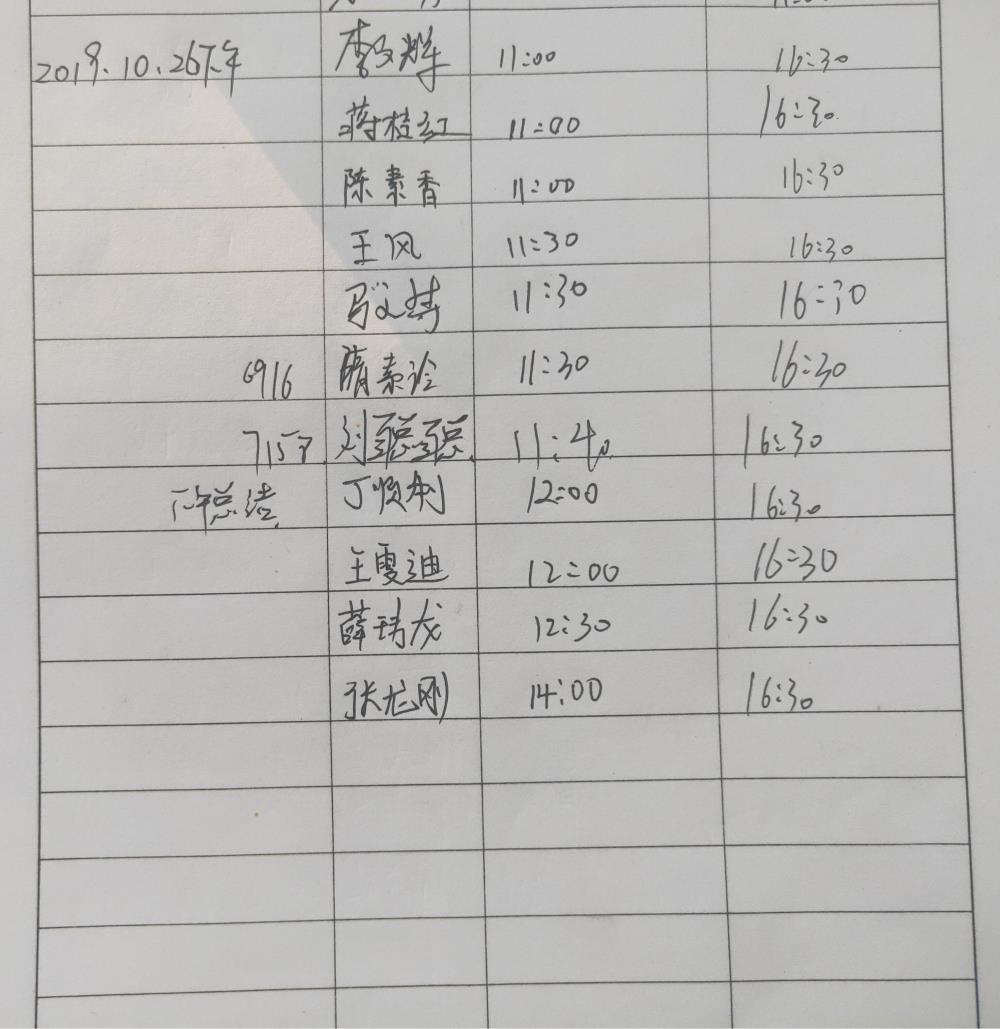 2019.10.26下午 李文辉 11:00 16:30
蒋桂红 11:00 16:30
陈素香 11:00 16:30
王风 11:30 16:30
马文 11:30 16:30
6916 隋素诊 11:30 16:30
7157 刘聪聪 11:40 16:30
丁顺利 12:00 16:30
王雯迪 12:00 16:30
薛玮龙 12:30 16:30
张龙刚 14:00 16:30